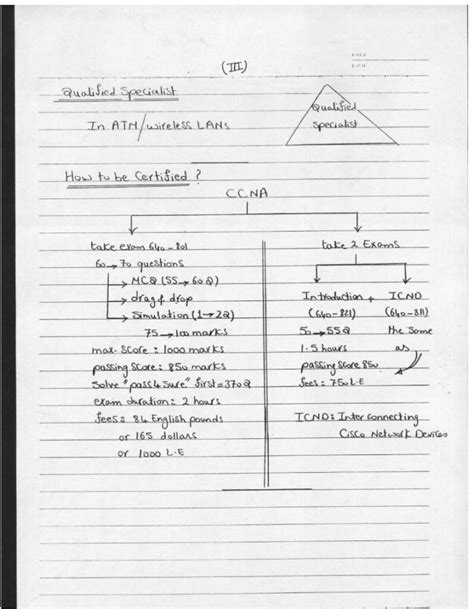 (III)
Qualified Specialist
In ATM/wireless LANs
Qualified
Specialist
How to be Certified ?
CCNA
take exam 640-801
60→70 questions
→ MCQ (55→60Q)
→ drag & drop
→ Simulation (1→2Q)
75→100 marks
max. Score = 1000 marks
passing Score = 850 marks
Solve "pass4Sure" first=370Q
exam duration: 2 hours
fees: 84 English pounds
or 165 dollars
or 1000 L.E
take 2 Exams
Introduction + ICND
(640-821) (640-811)
50→55Q the same
1.5 hours as
passing score 850
fees: 750L.E
ICND: Inter connecting
Cisco Network Devices